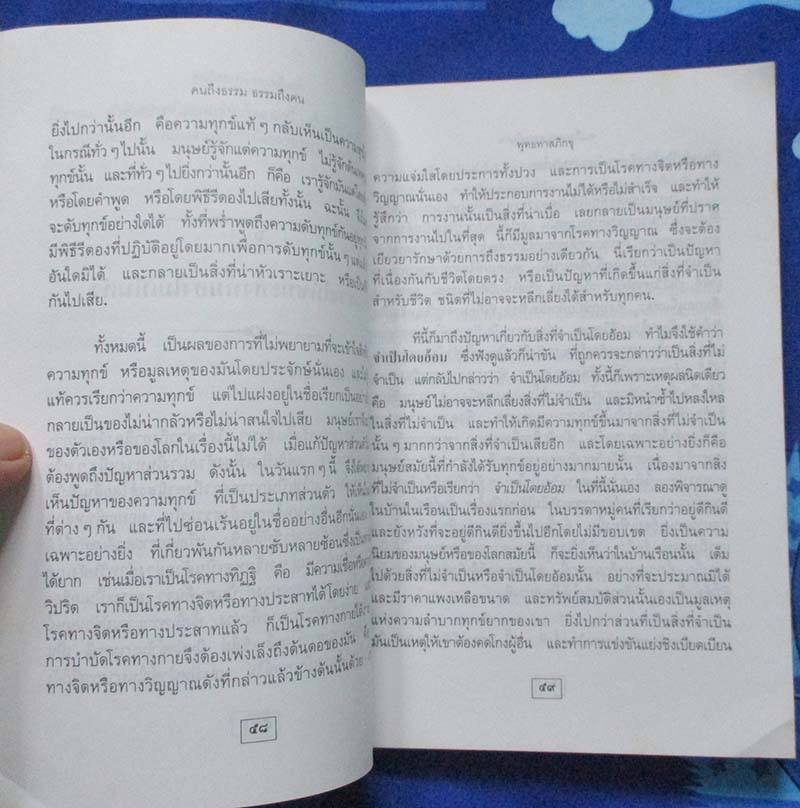 คนถึงธรรม ธรรมถึงคน
ยิ่งไปกว่านั้นอีก คือความทุกข์แท้ ๆ กลับเห็นเป็นความ
ในกรณีทั่ว ๆ ไปนั้น มนุษย์รู้จักแต่ความทุกข์ ไม่รู้จัก
ทุกข์นั้น และที่ทั่ว ๆ ไปยิ่งกว่านั้นอีก ก็คือ เรารู้จักมัน
หรือโดยคำพูด หรือโดยพิธีรีตองไปเสียทั้งนั้น ฉะนั้น
จะดับทุกข์อย่างใดได้ ทั้งที่พร่ำพูดถึงความดับทุกข์กันอยู่
มีพิธีรีตองที่ปฏิบัติอยู่โดยมากเพื่อการดับทุกข์นั้น ๆ
อันใดมิได้ และกลายเป็นสิ่งที่น่าหัวเราะเยาะ หรือ
กันไปเสีย.
ทั้งหมดนี้ เป็นผลของการที่ไม่พยายามที่จะเข้าใจ
ความทุกข์ หรือมูลเหตุของมันโดยประจักษ์นั่นเอง
แท้ควรเรียกว่าความทุกข์ แต่ไปแฝงอยู่ในชื่อเรียกเป็น
กลายเป็นของไม่น่ากลัวหรือไม่น่าสนใจไปเสีย มนุษย์เรา
ของตัวเองหรือของโลกในเรื่องนี้ไม่ได้ เมื่อแก้ปัญหาส่วนตัว
ต้องพูดถึงปัญหาส่วนรวม ดังนั้น ในวันแรก ๆ นี้
เห็นปัญหาของความทุกข์ ที่เป็นประเภทส่วนตัว ให้เห็น
ที่ต่าง ๆ กัน และที่ไปซ่อนเร้นอยู่ในชื่ออย่างอื่นอีกนั้น
เฉพาะอย่างยิ่ง ที่เกี่ยวพันกันหลายซับหลายซ้อนซึ่ง
ได้ยาก เช่นเมื่อเราเป็นโรคทางทิฏฐิ คือ มีความเชื่อ
วิปริต เราก็เป็นโรคทางจิตหรือทางประสาทได้โดยง่าย
โรคทางจิตหรือทางประสาทแล้ว ก็เป็นโรคทางกายได้
การบำบัดโรคทางกายจึงต้องเพ่งเล็งถึงต้นตอของมัน
ทางจิตหรือทางวิญญาณดังที่กล่าวแล้วข้างต้นนั้นด้วย
๕๘
พุทธทาสภิกขุ
ความแจ่มใสโดยประการทั้งปวง และการเป็นโรคทางจิตหรือทาง
วิญญาณนั่นเอง ทำให้ประกอบการงานไม่ได้หรือไม่สำเร็จ และทำให้
รู้สึกว่า การงานนั้นเป็นสิ่งที่น่าเบื่อ เลยกลายเป็นมนุษย์ที่ปราศ
จากการงานไปในที่สุด นี้ก็มีมูลมาจากโรคทางวิญญาณ ซึ่งจะต้อง
เยียวยารักษาด้วยการถึงธรรมอย่างเดียวกัน นี้เรียกว่าเป็นปัญหา
ที่เนื่องกันกับชีวิตโดยตรง หรือเป็นปัญหาที่เกิดขึ้นแก่สิ่งที่จำเป็น
สำหรับชีวิต ชนิดที่ไม่อาจจะหลีกเลี่ยงได้สำหรับทุกคน.
ทีนี้ก็มาถึงปัญหาเกี่ยวกับสิ่งที่จำเป็นโดยอ้อม ทำไมจึงใช้คำว่า
จำเป็นโดยอ้อม ซึ่งฟังดูแล้วก็น่าขัน ที่ถูกควรจะกล่าวว่าเป็นสิ่งที่ไม่
จำเป็น แต่กลับไปกล่าวว่า จำเป็นโดยอ้อม ทั้งนี้ก็เพราะเหตุผลนิดเดียว
คือ มนุษย์ไม่อาจจะหลีกเลี่ยงสิ่งที่ไม่จำเป็น และมิหนำซ้ำไปหลงใหล
ในสิ่งที่ไม่จำเป็น และทำให้เกิดมีความทุกข์ขึ้นมาจากสิ่งที่ไม่จำเป็น
นั้น ๆ มากกว่าจากสิ่งที่จำเป็นเสียอีก และโดยเฉพาะอย่างยิ่งก็คือ
มนุษย์สมัยนี้ที่กำลังได้รับทุกข์อยู่อย่างมากมายนั้น เนื่องมาจากสิ่ง
ที่ไม่จำเป็นหรือเรียกว่า จำเป็นโดยอ้อม ในที่นี้นั่นเอง ลองพิจารณาดู
ในบ้านในเรือนเป็นเรื่องแรกก่อน ในบรรดาหมู่คนที่เรียกว่าอยู่ดีกินดี
และยังหวังที่จะอยู่ดีกินดียิ่งขึ้นไปอีกโดยไม่มีขอบเขต ยิ่งเป็นความ
นิยมของมนุษย์หรือของโลกสมัยนี้ ก็จะยิ่งเห็นว่าในบ้านเรือนนั้น เต็ม
ไปด้วยสิ่งที่ไม่จำเป็นหรือจำเป็นโดยอ้อมนั้น อย่างที่จะประมาณมิได้
และมีราคาแพงเหลือขนาด และทรัพย์สมบัติส่วนนั้นเองเป็นมูลเหตุ
แห่งความลำบากทุกข์ยากของเขา ยิ่งไปกว่าส่วนที่เป็นสิ่งที่จำเป็น
มันเป็นเหตุให้เขาต้องคดโกงผู้อื่น และทำการแข่งขันแย่งชิงเบียดเบียน
๕๙